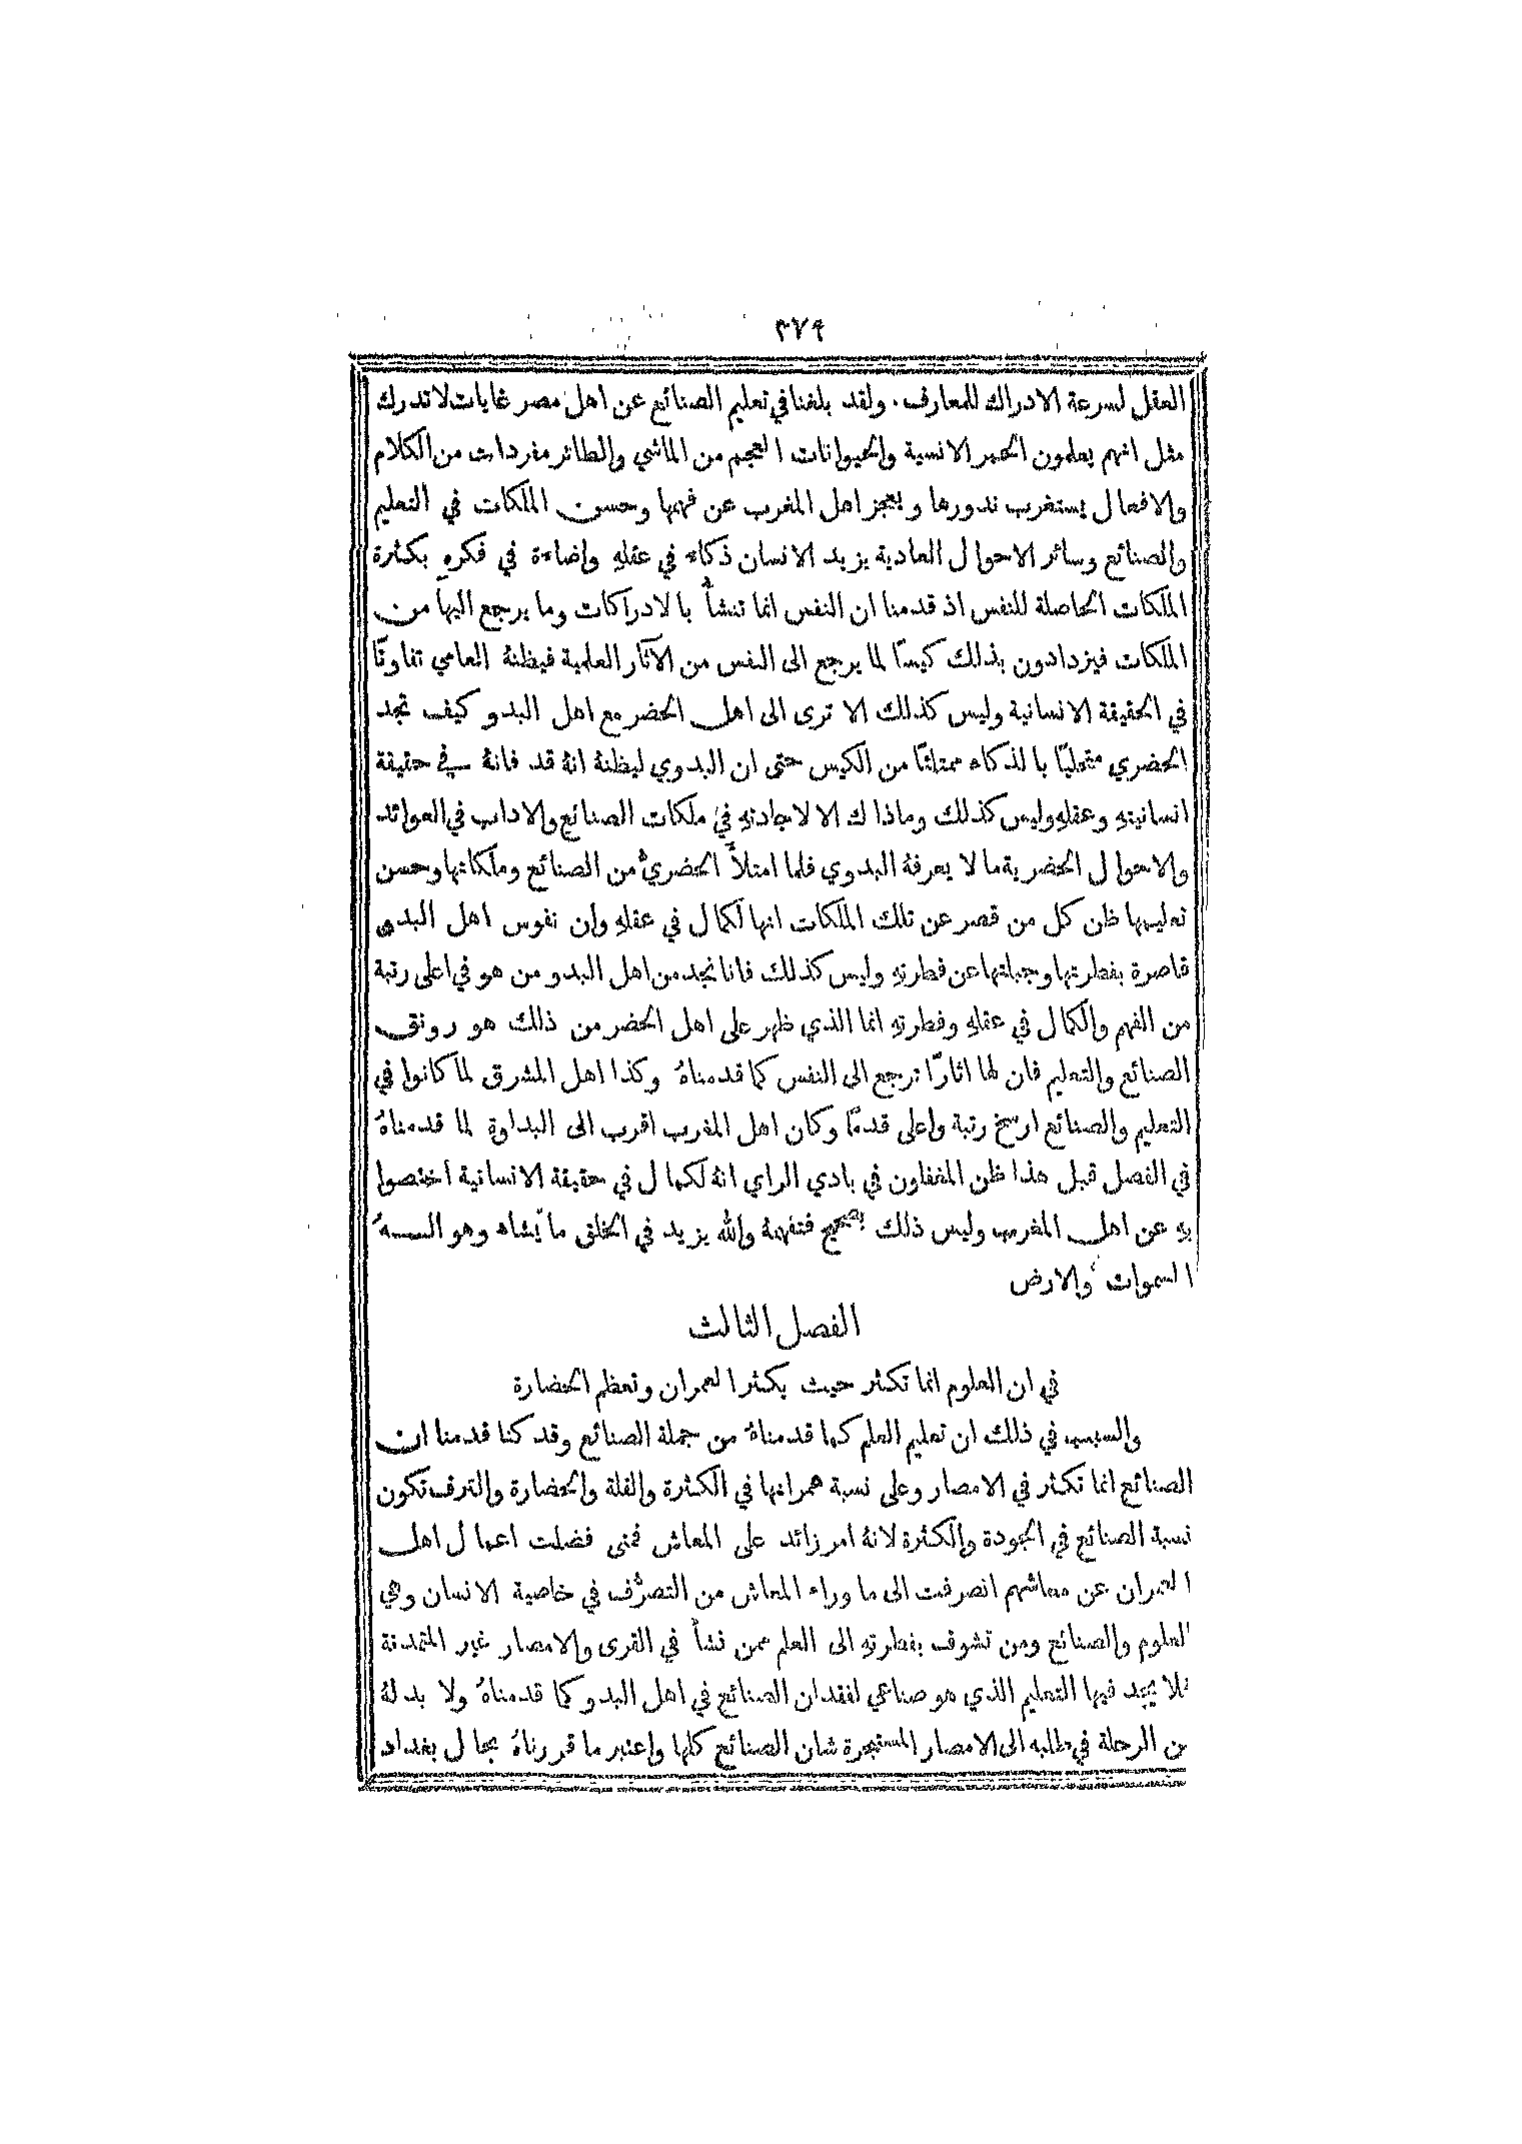 ٣٧٩
العقل لسرعة الادراك للمعارف. ولقد بلغنا في تعليم الصنائع عن اهل مصر غايات لا تدرك
مثل انهم يعلمون الحمر الانسية والحيوانات العجم من الماشي والطائر مفردات من الكلام
والافعال يستغرب ندورها ويعجز اهل المغرب عن فهمها وحسن الملكات في التعليم
والصنائع وسائر الاحوال العادية يزيد الانسان ذكاء في عقلهِ واضاءة في فكرهِ بكثرة
الملكات الحاصلة للنفس اذ قدمنا ان النفس انما تنشأُ بالادراكات وما يرجع اليها من
الملكات فيزدادون بذلك كيسًا لما يرجع الى النفس من الآثار العلمية فيظنهُ العامي تفاوتًا
في الحقيقة الانسانية وليس كذلك الا ترى الى اهل الحضر مع اهل البدو كيف تجد
الحضري متحليًا بالذكاء ممتلئًا من الكيس حتى ان البدوي ليظنهُ انهُ قد فاتهُ في حقيقة
انسانيتهِ وعقلهِ وليس كذلك وما ذاك الا لاجادتهِ في ملكات الصنائع والاداب في العوائد
والاحوال الحضرية ما لا يعرفهُ البدوي فلما امتلأَ الحضريُّ من الصنائع وملكاتها وحسن
تعليمها ظن كل من قصر عن تلك الملكات انها لكمال في عقلهِ وان نفوس اهل البدو
قاصرة بفطرتها وجبلتها عن فطرتهِ وليس كذلك فانا نجد من اهل البدو من هو في اعلى رتبة
من الفهم والكمال في عقلهِ وفطرتهِ انما الذي ظهر على اهل الحضر من ذلك هو رونق
الصنائع والتعليم فان لها اثارًا ترجع الى النفس كما قدمناهُ وكذا اهل المشرق لما كانوا في
التعليم والصنائع ارسخ رتبة واعلى قدمًا وكان اهل المغرب اقرب الى البداوة لما قدمناهُ
في الفصل قبل هذا ظن المغفلون في بادي الراي انهُ لكمال في حقيقة الانسانية اختصوا
بهِ عن اهل المغرب وليس ذلك بصحيح فتفهمهُ والله يزيد في الخلق ما يشاء وهو
السموات والارض
الفصل الثالث
في ان العلوم انما تكثر حيث يكثر العمران وتعظم الحضارة
والسبب في ذلك ان تعليم العلم كما قدمناهُ من جملة الصنائع وقد كنا قدمنا ان
الصنائع انما تكثر في الامصار وعلى نسبة عمرانها في الكثرة والقلة والحضارة والترف تكون
نسبة الصنائع في الجودة والكثرة لانهُ امر زائد على المعاش فمتى فضلت اعمال اهل
العمران عن معاشهم انصرفت الى ما وراء المعاش من التصرُّف في خاصية الانسان وهي
العلوم والصنائع ومن تشوف بفطرتهِ الى العلم ممن نشأَ في القرى والامصار غير المتمدنة
فلا يجد فيها التعليم الذي هو صناعي لفقدان الصنائع في اهل البدو كما قدمناهُ ولا بد لهُ
من الرحلة في طلبه الى الامصار المستبحرة شان الصنائع كلها واعتبر ما قررناهُ بحال بغداد